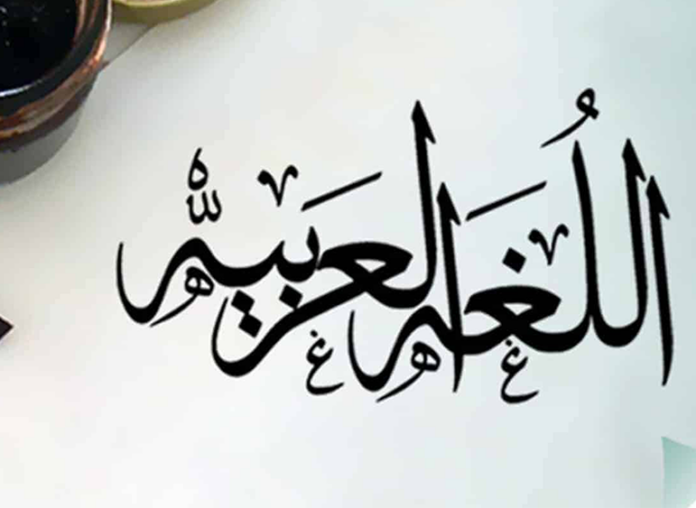 اللُّغه العَربيه